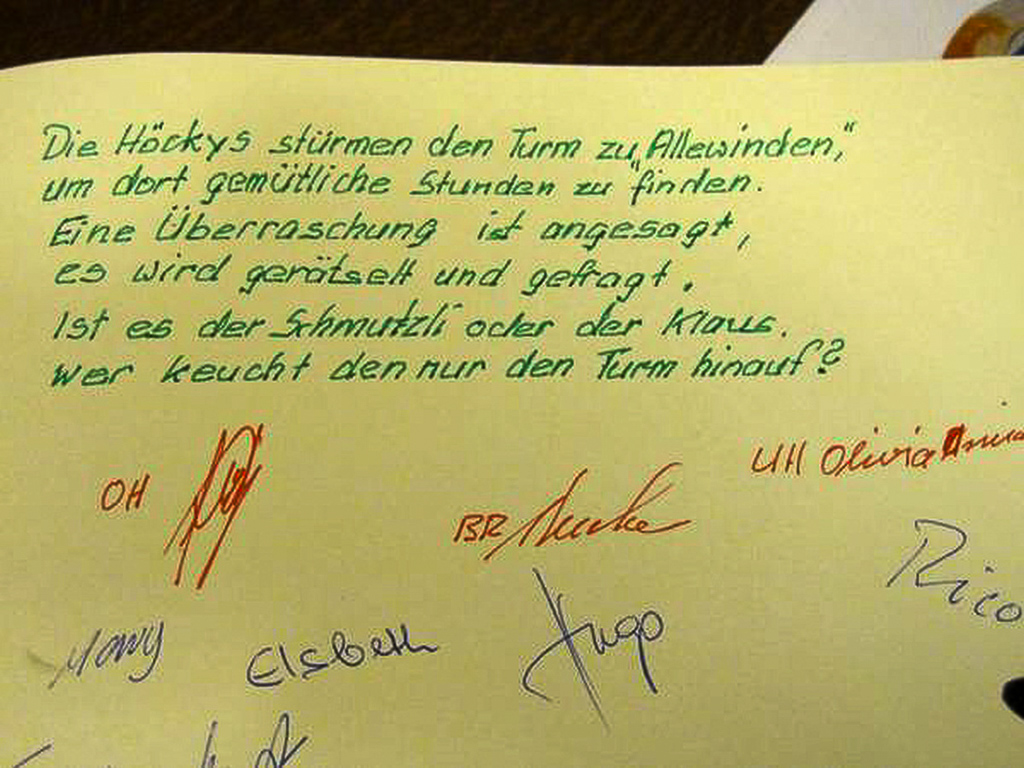 Die Höckys stürmen den Turm zu „Allewinden,“
um dort gemütliche Stunden zu finden.
Eine Überraschung ist angesagt,
es wird gerätselt und gefragt.
Ist es der Schmutzli oder der Klaus.
Wer keucht den nur den Turm hinauf?
OH
BR
UH Olivia
Rico
Elsbeth Hugo